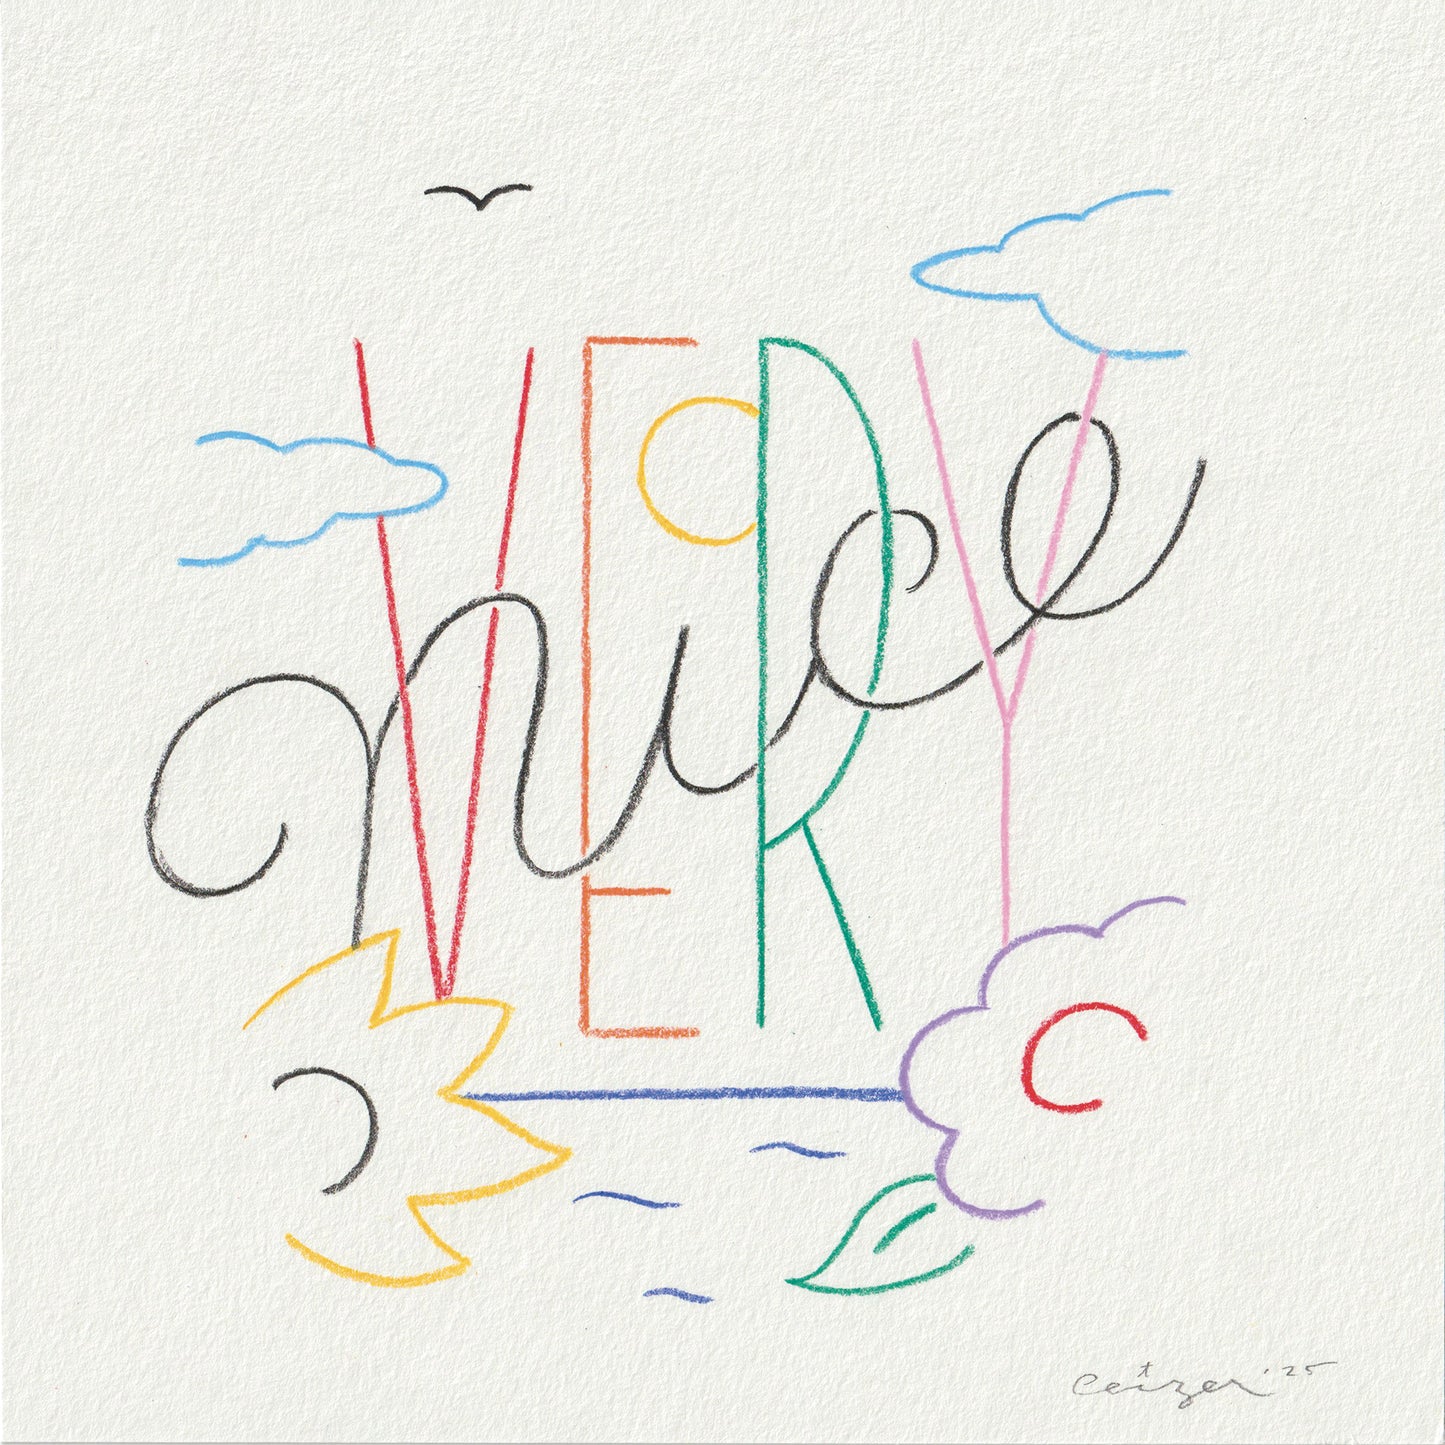 VERY
nice
Ceizer '25